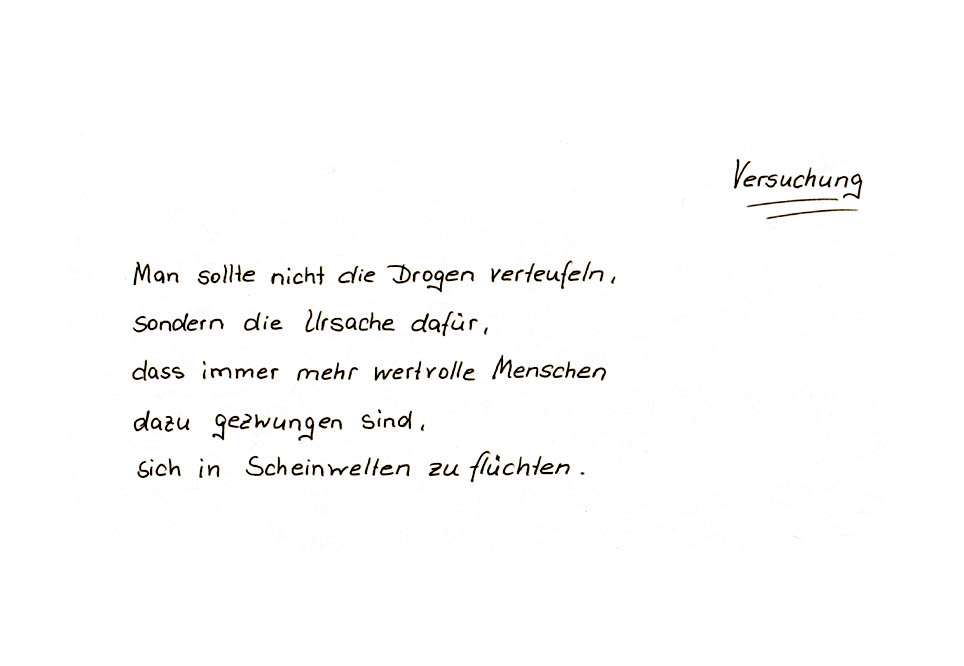 Versuchung
Man sollte nicht die Drogen verteufeln,
sondern die Ursache dafür,
dass immer mehr wertvolle Menschen
dazu gezwungen sind,
sich in Scheinwelten zu flüchten.